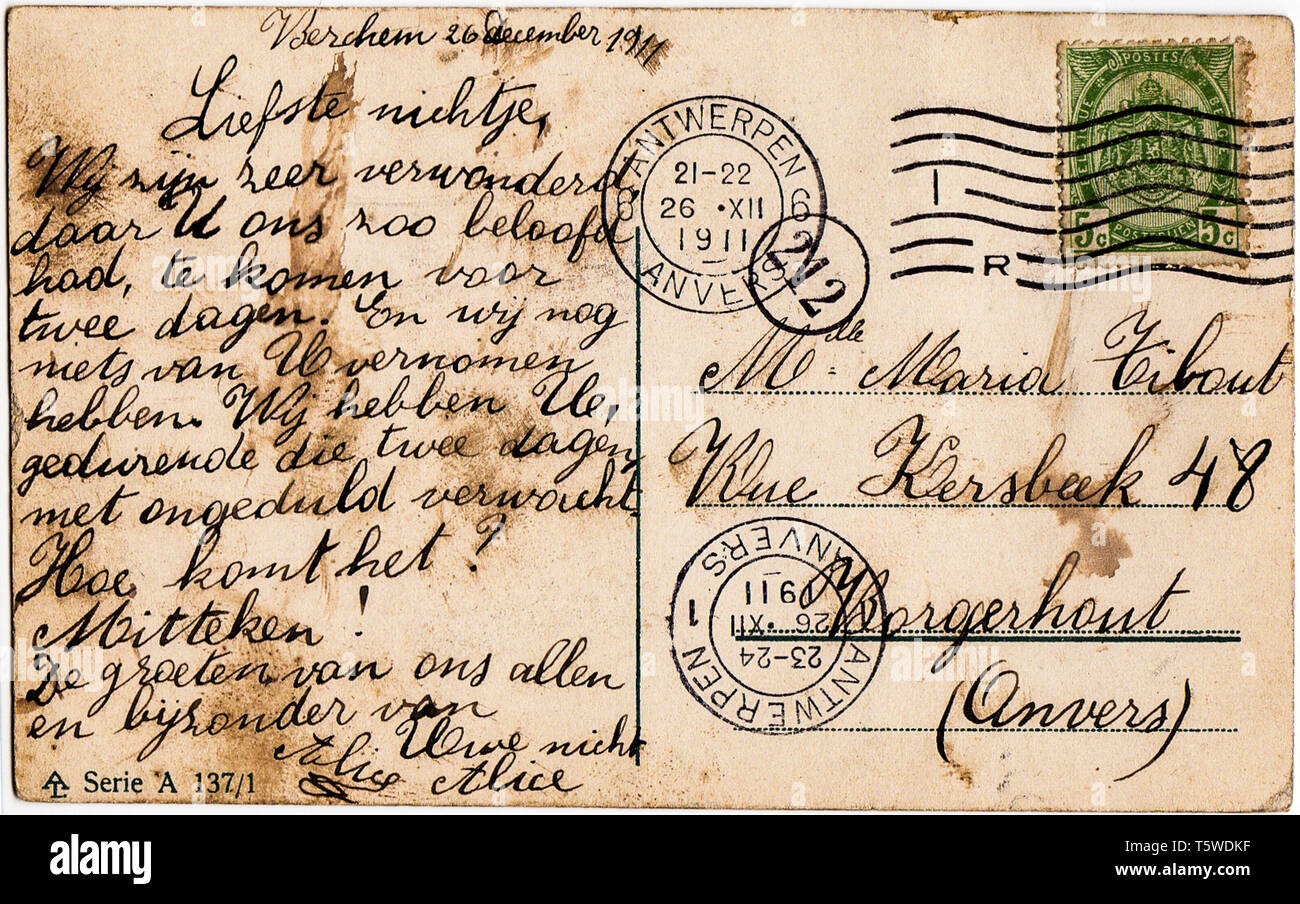 Berchem 26 december 1911
Liefste nichtje,
Wij zijn zeer verwonderd,
daar U ons zoo beloofd
had, te komen voor
twee dagen. En wij nog
niets van U vernomen
hebben. Wij hebben Ue,
gedurende die twee dagen,
met ongeduld verwacht.
Hoe komt het?
Mitteken!
De groeten van ons allen
en bijzonder van
Uwe nicht
Alice Alice
Serie A 137/1
6 ANTWERPEN 6
21-22
26 • XII
1911
ANVERS
212
1
R
POSTES
5c POSTERIJEN 5c
Mlle Maria Tibout
Rue Kersbeek 48
Borgerhout
(Anvers)
1 ANTWERPEN 1
23-24
26 • XII
1911
ANVERS
alamy
Image ID: T5WDKF
www.alamy.com